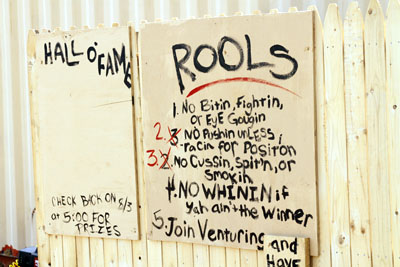 HALL O' FAME
CHECK BACK ON 8/3
at 5:00 FOR
PRIZES
ROOLS
1. No Bitin, Fightin,
or EyE Gougin
2. No Pushin unless,
racin for Positon
3. No Cussin, Spit'n, or
Smokin
4. NO WHININ if
yah ain't the winner
5. Join Venturing
and
HAVE